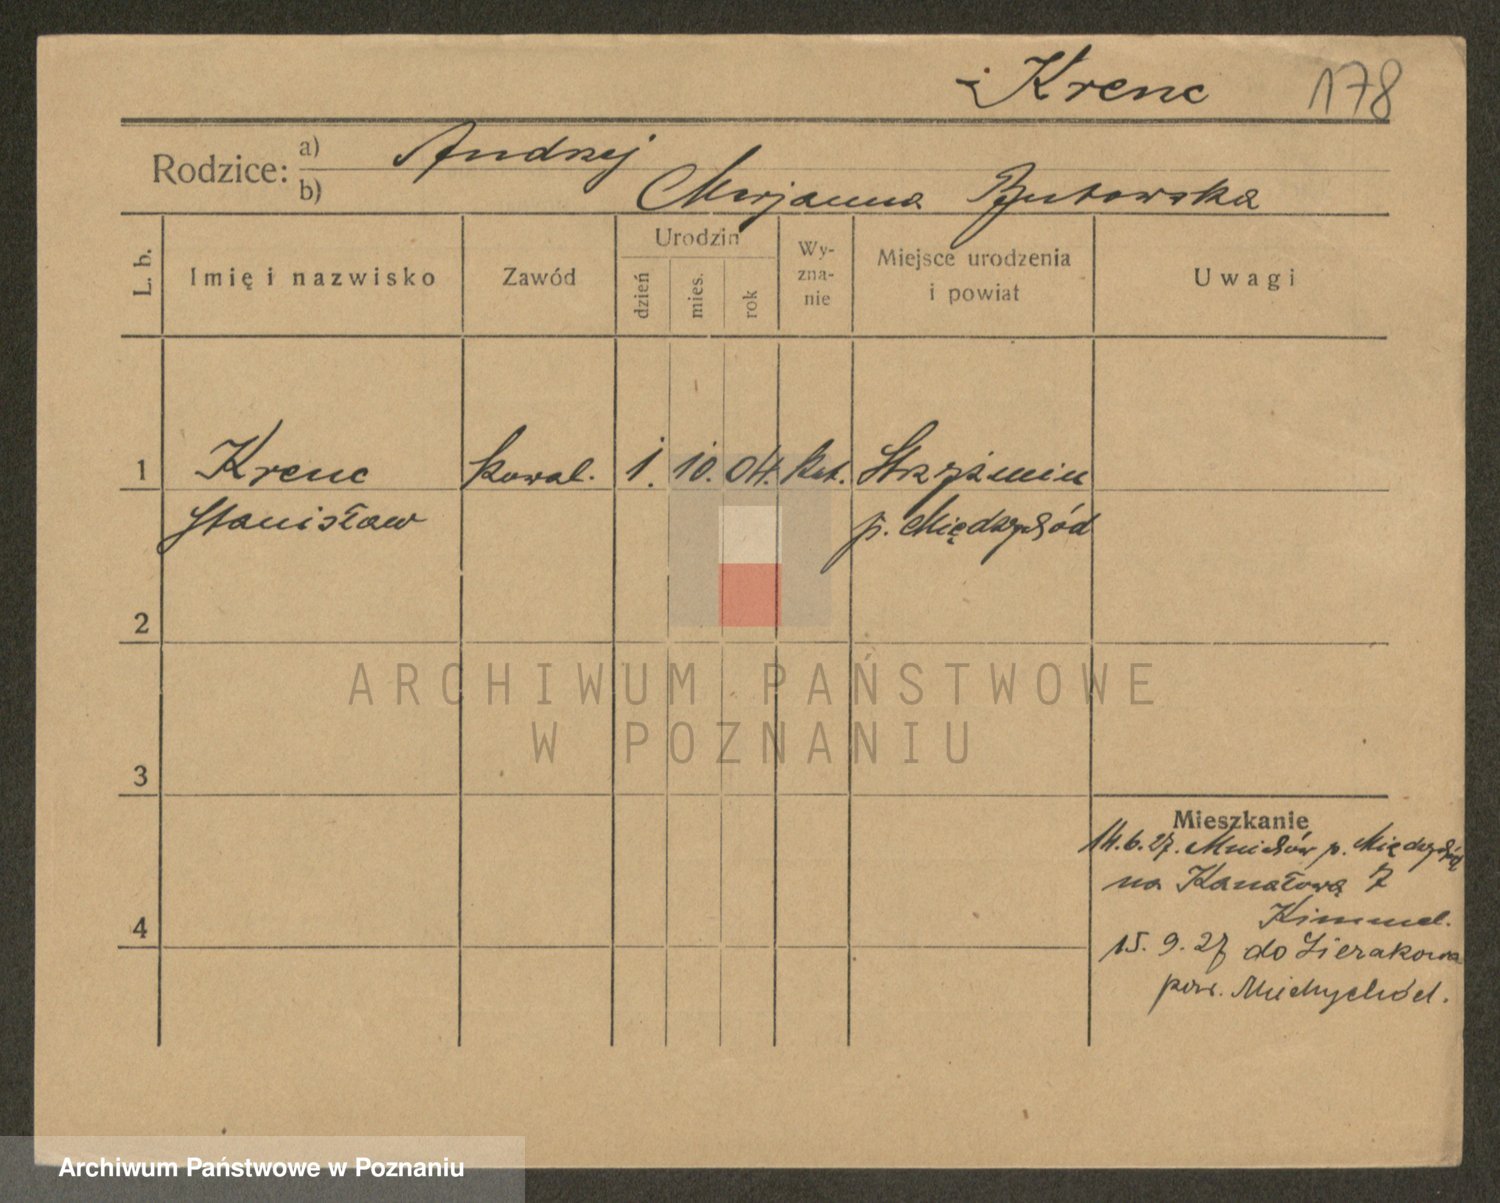 Krenc 178
Rodzice: a) Andrzej
b) Marjanna
L. b.
Imię i nazwisko
Zawód
Urodzin
dzień
mies.
rok
Wy-
zna-
nie
Miejsce urodzenia
i powiat
Uwagi
1 Krenc kowal. 1. 10. 04. kat. Strzyżmin
Stanisław p. Międzychód
2
ARCHIWUM PAŃSTWOWE
W POZNANIU
3
Mieszkanie
14.6.27. Mnichów p. Międzychód
na Kanałową 7
Kimmel.
4
15. 9. 27 do Sierakowa
pow. Miedzychód.
Archiwum Państwowe w Poznaniu